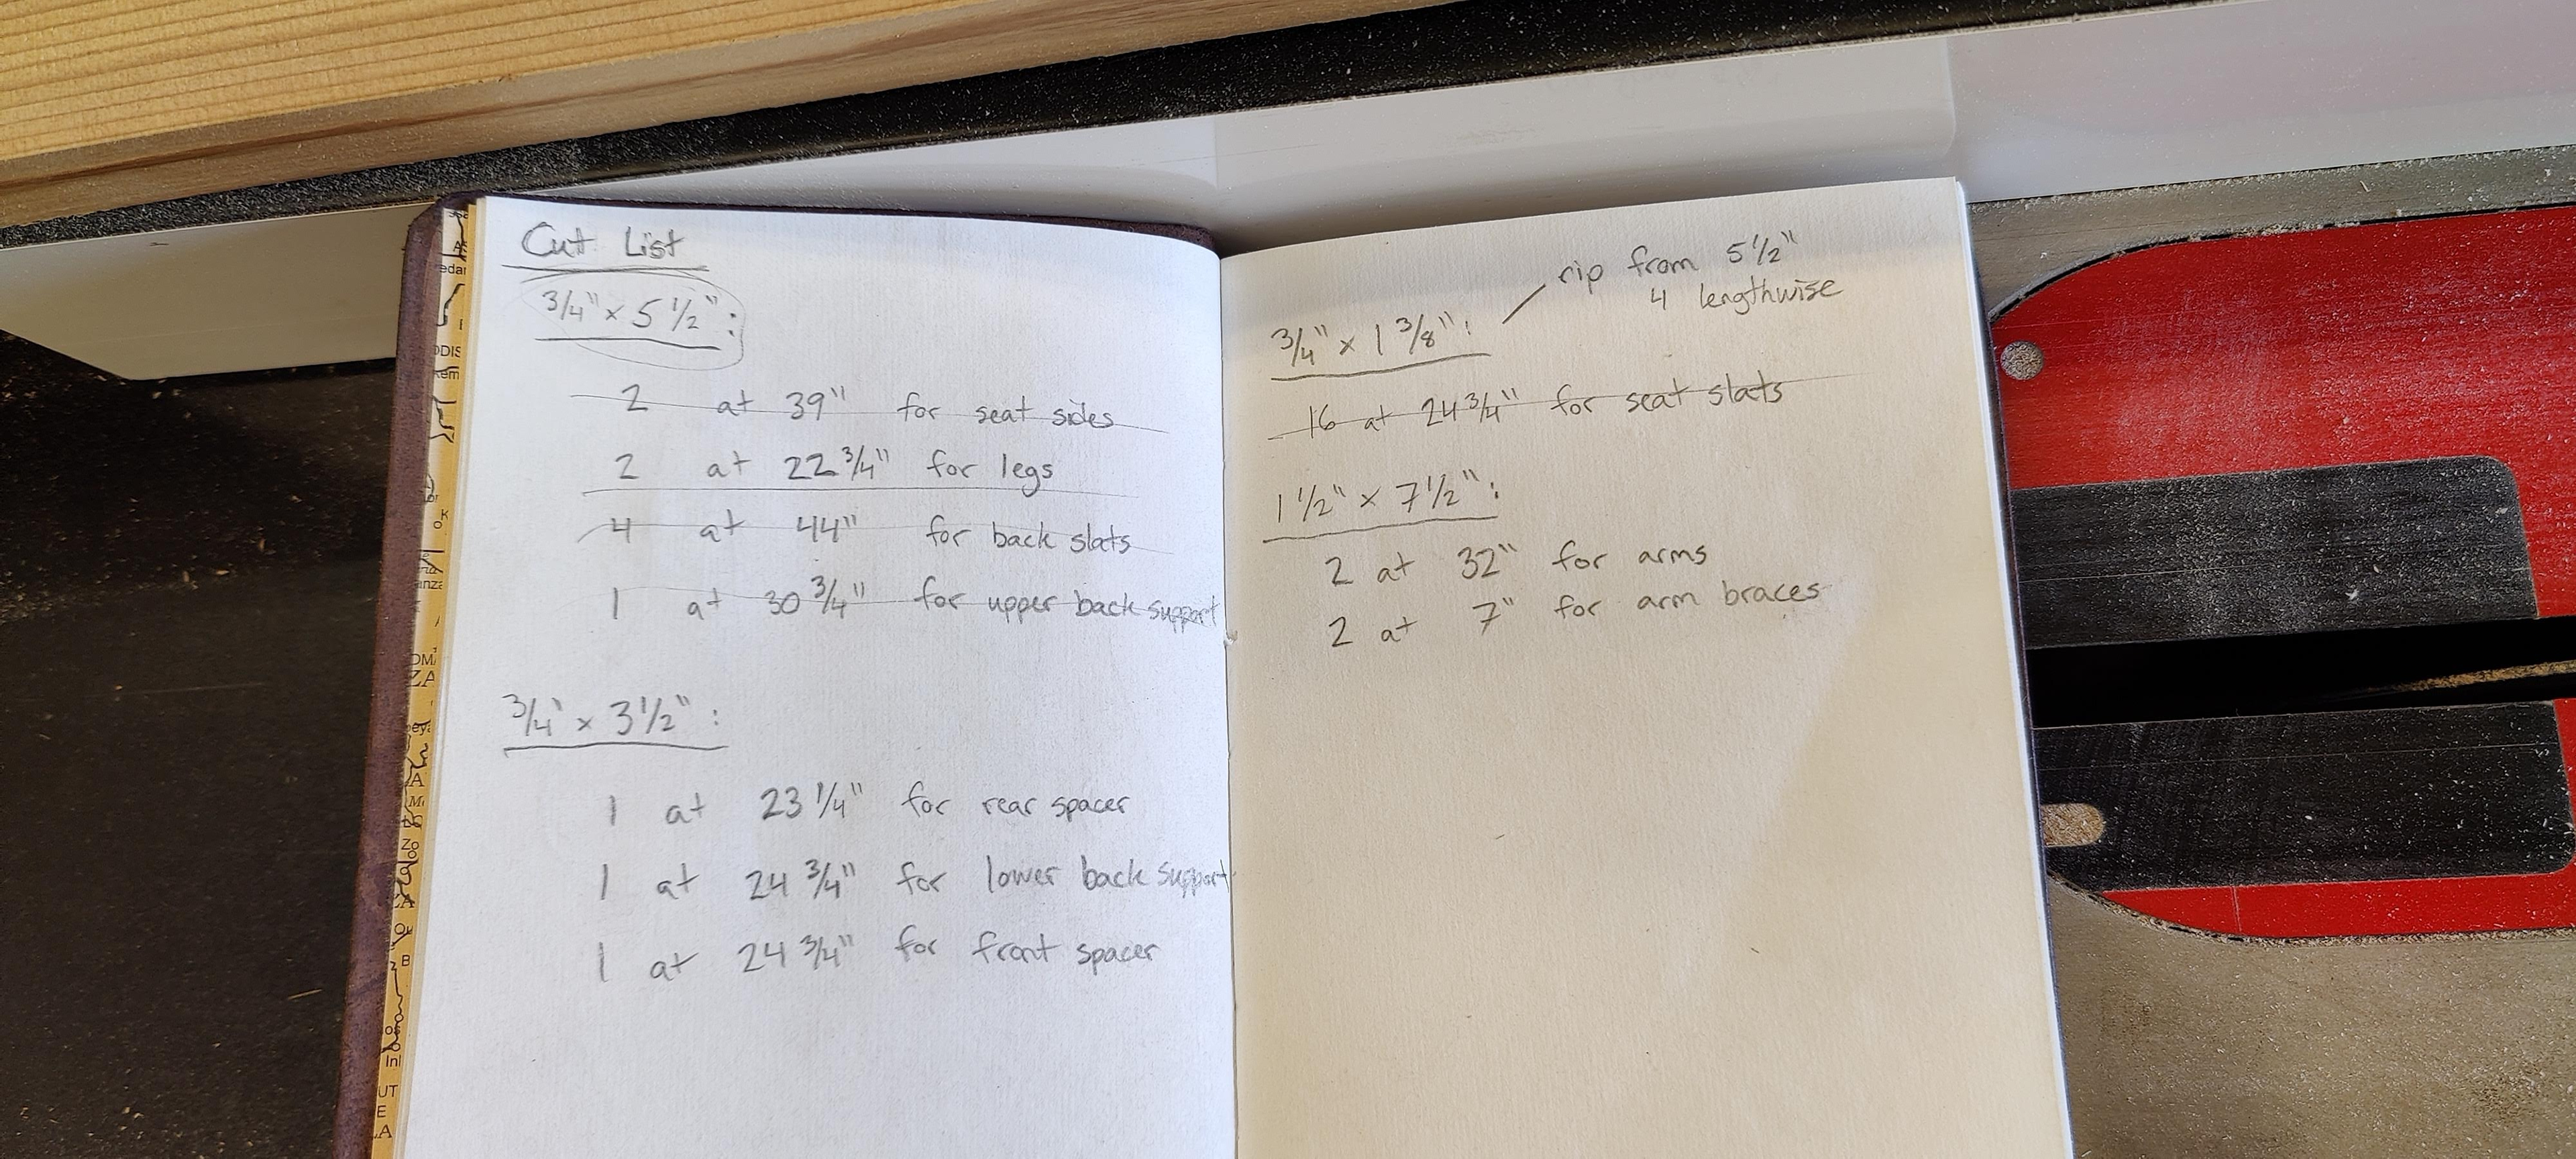 Cut List
3/4" x 5 1/2":
2 at 39" for seat sides
2 at 22 3/4" for legs
4 at 44" for back slats
1 at 30 3/4" for upper back support
3/4" x 3 1/2":
1 at 23 1/4" for rear spacer
1 at 24 3/4" for lower back support
1 at 24 3/4" for front spacer
rip from 5 1/2"
4 lengthwise
3/4" x 1 3/8":
16 at 24 3/4" for seat slats
1 1/2" x 7 1/2":
2 at 32" for arms
2 at 7" for arm braces